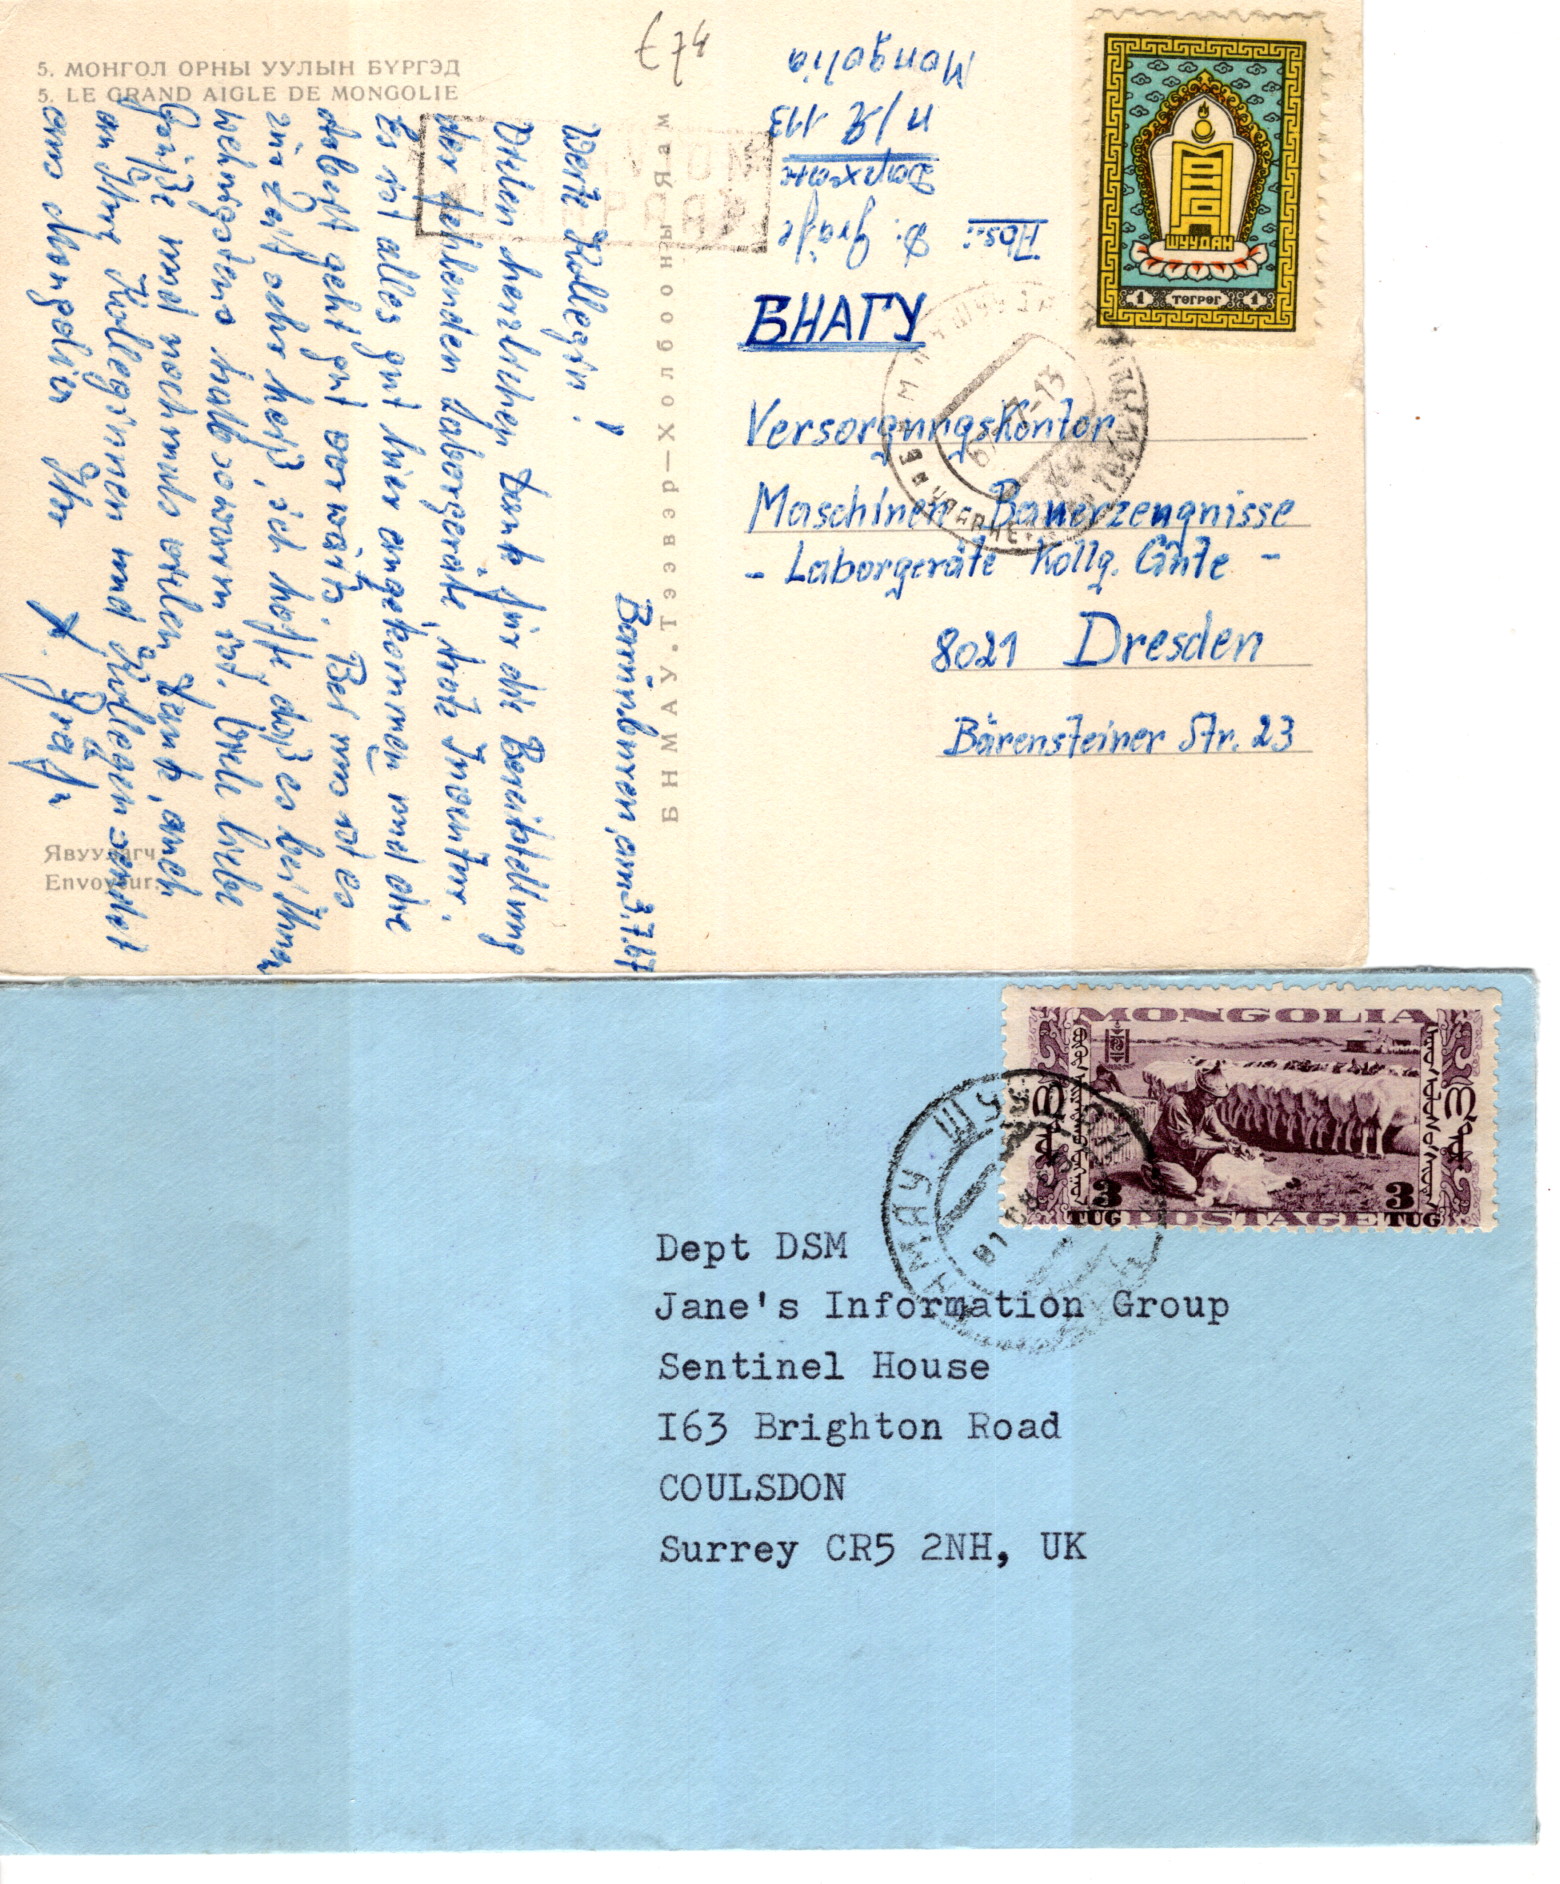 5. МОНГОЛ ОРНЫ УУЛЫН БҮРГЭД
5. LE GRAND AIGLE DE MONGOLIE
Baruunburen, am 3.7.67
Werte Kollegin!
Vielen herzlichen Dank für die Bereitstellung
der fehlenden Laborgeräte, trotz Inventur.
Es ist alles gut hier angekommen und die
Arbeit geht gut vorwärts. Bei uns ist es
zur Zeit sehr heiß, ich hoffe, daß es bei Ihnen
wenigstens halb so warm ist. Viele liebe
Grüße und nochmals vielen Dank, auch
an Ihre Kolleginnen und Kollegen sendet
aus der Mongolei Ihr
Явуулагч
Envoyeur:
БНМАУ. Тээвэр—Холбооны Яам
Abs.: D. Gräfe
Дархан
п/я 113
Mongolia
ШУУДАН
1 ТӨГРӨГ 1
БНАГУ
Versorgungskontor
Maschinen-Bauerzeugnisse
- Laborgeräte Kollg. Günte -
8021 Dresden
Bärensteiner Str. 23
MONGOLIA
3 3
TUG POSTAGE TUG
Dept DSM
Jane's Information Group
Sentinel House
I63 Brighton Road
COULSDON
Surrey CR5 2NH, UK